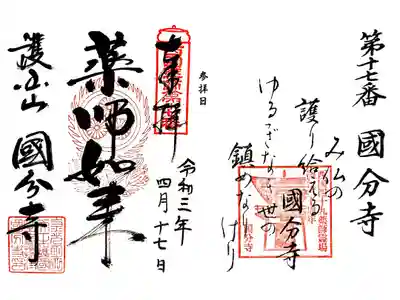 第十七番 國分寺
み仏の
護り給える
ゆるぎなき世の
鎮めなりけり
國分寺
参拝日
奉拝
令和三年
四月十七日
薬師如来
護国山 國分寺